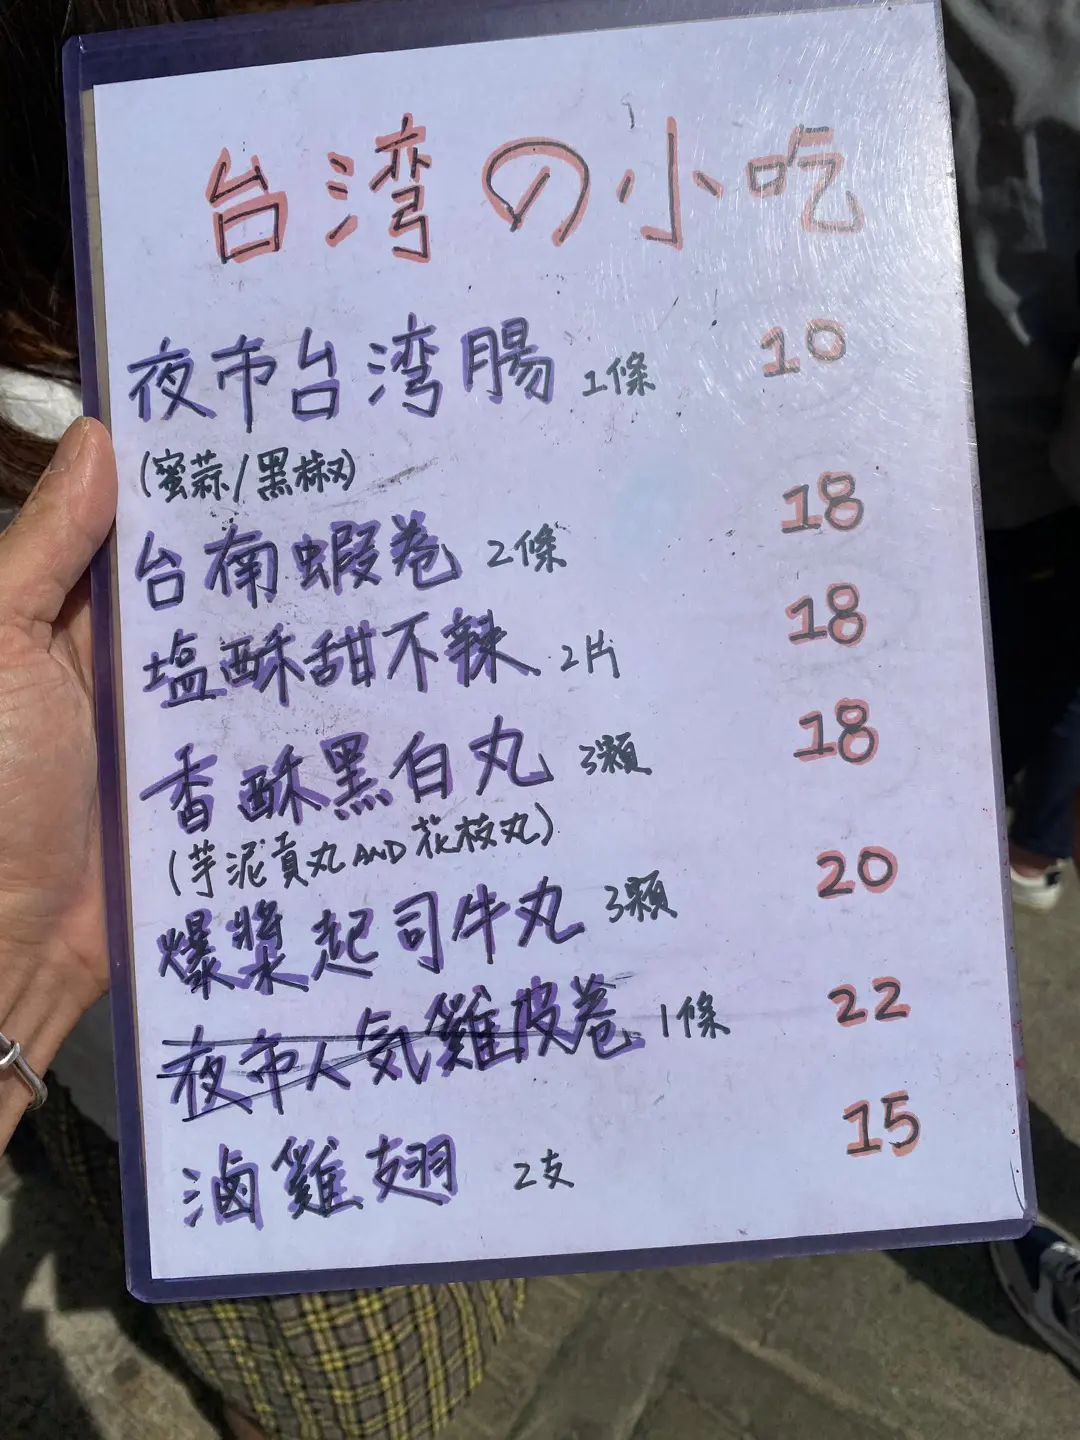 台湾の小吃
夜市台湾腸 1條 10
(蜜蒜/黑椒)
台南蝦卷 2條 18
塩酥甜不辣 2片 18
香酥黑白丸 3顆 18
(芋泥貢丸AND花枝丸)
爆漿起司牛丸 3顆 20
夜市人気雞皮卷 1條 22
滷雞翅 2支 15